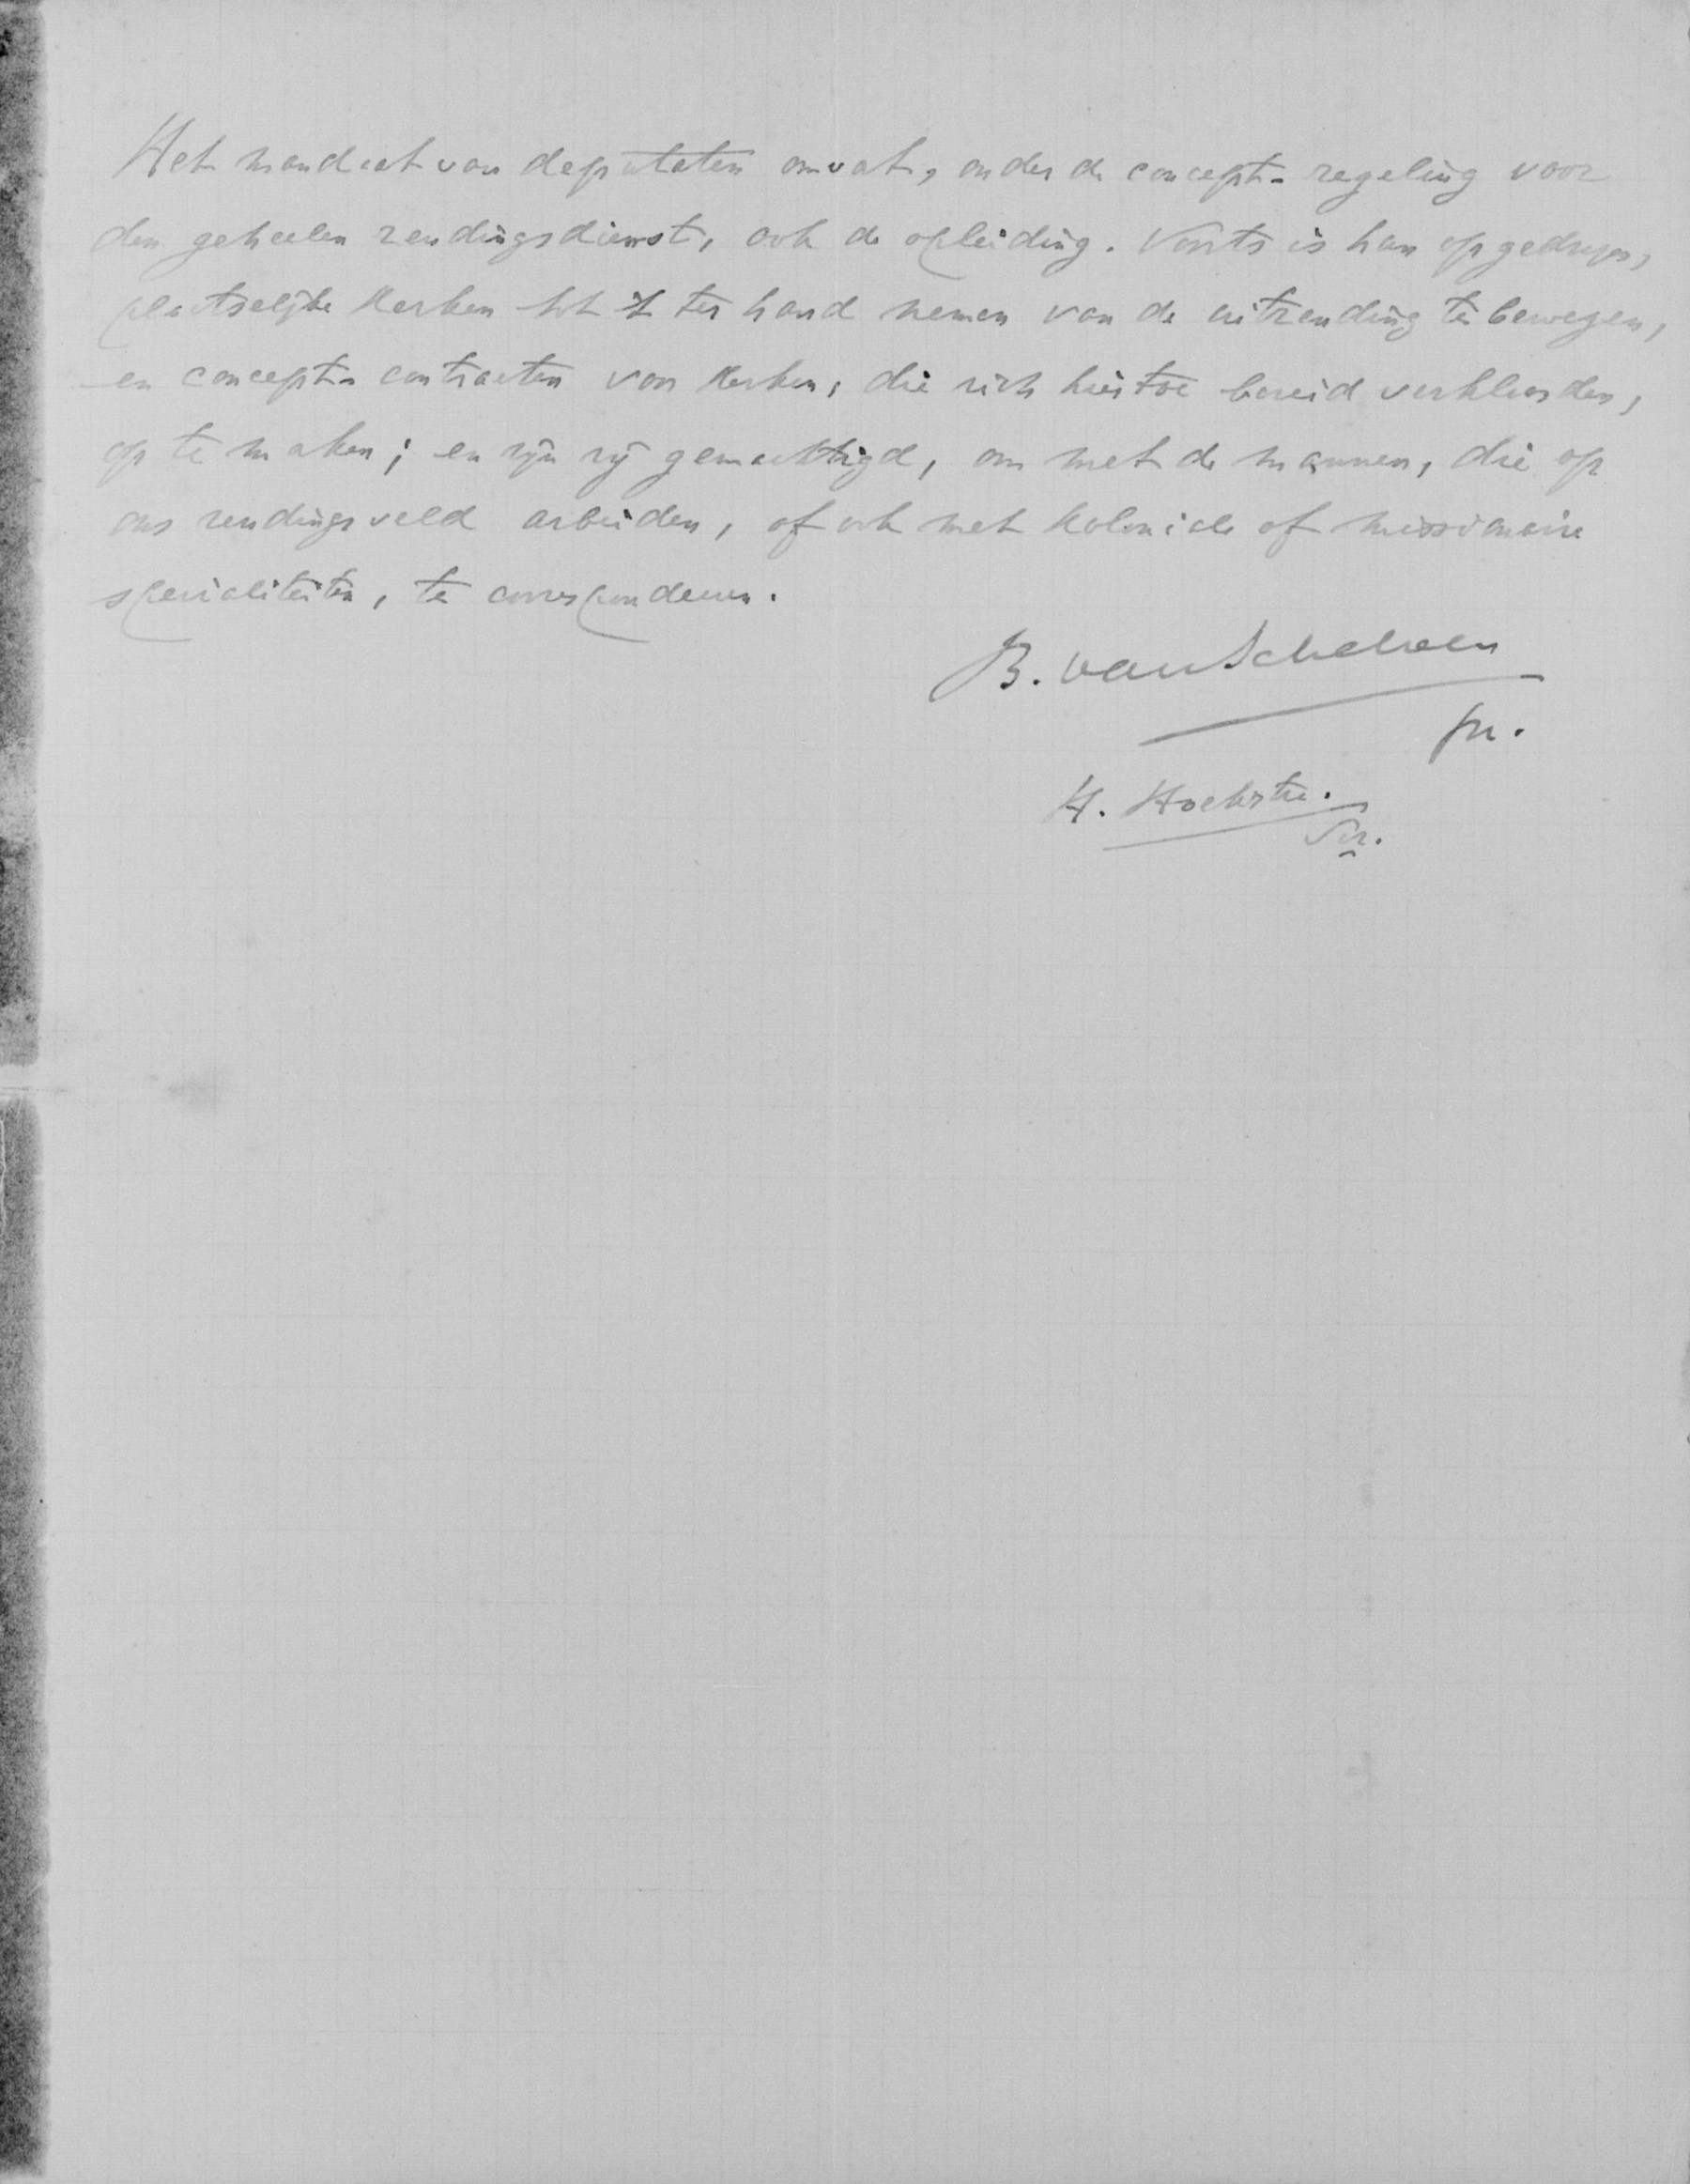 Het mandaat van deputaten omvat, onder de concept-regeling voor
den geheelen zendingsdienst, ook de opleiding. Voorts is hun opgedragen,
plaatselijke Kerken tot 't ter hand nemen van de uitzending te bewegen,
en concept-contracten voor Kerken, die zich hiertoe bereid verklaarden,
op te maken; en zijn zij gemachtigd, om met de mannen, die op
ons zendingsveld arbeiden, of ook met koloniale of missionaire
specialiteiten, te correspondeeren.
B. van Schelven
pr.
H. Hoekstra.
Scr.